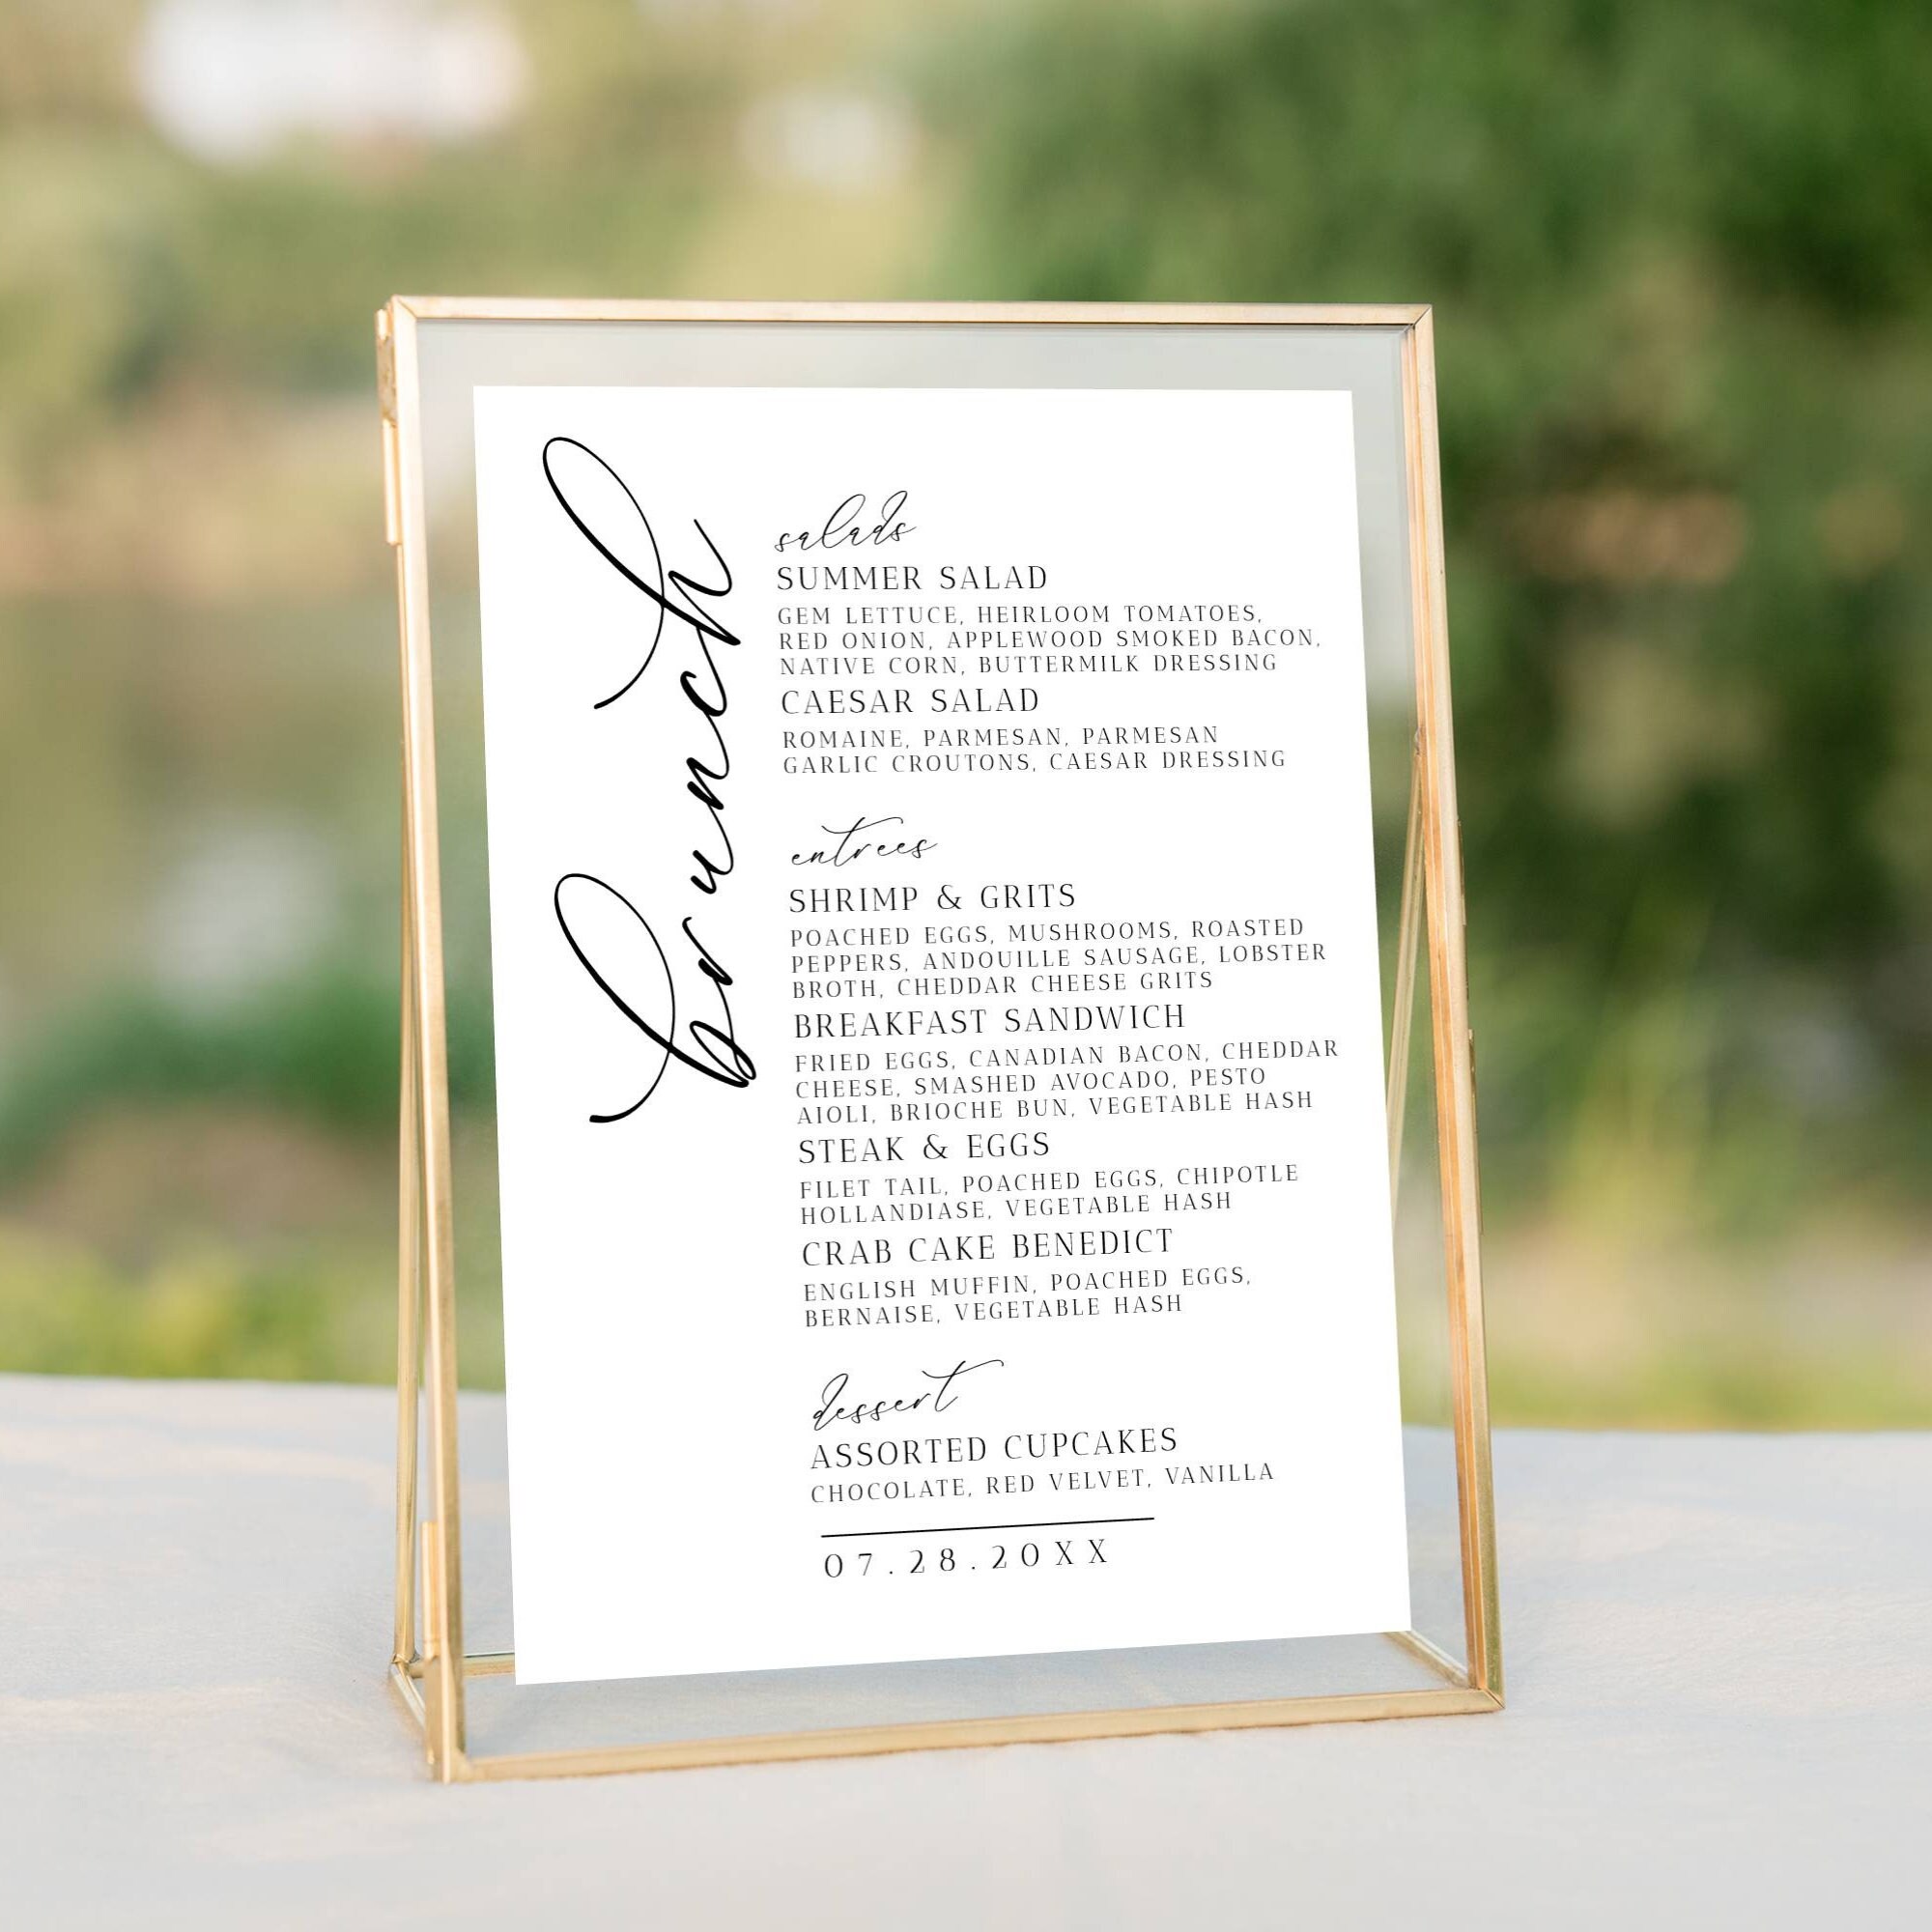 brunch
salads
SUMMER SALAD
GEM LETTUCE, HEIRLOOM TOMATOES,
RED ONION, APPLEWOOD SMOKED BACON,
NATIVE CORN, BUTTERMILK DRESSING
CAESAR SALAD
ROMAINE, PARMESAN, PARMESAN
GARLIC CROUTONS, CAESAR DRESSING
entrees
SHRIMP & GRITS
POACHED EGGS, MUSHROOMS, ROASTED
PEPPERS, ANDOUILLE SAUSAGE, LOBSTER
BROTH, CHEDDAR CHEESE GRITS
BREAKFAST SANDWICH
FRIED EGGS, CANADIAN BACON, CHEDDAR
CHEESE, SMASHED AVOCADO, PESTO
AIOLI, BRIOCHE BUN, VEGETABLE HASH
STEAK & EGGS
FILET TAIL, POACHED EGGS, CHIPOTLE
HOLLANDIASE, VEGETABLE HASH
CRAB CAKE BENEDICT
ENGLISH MUFFIN, POACHED EGGS,
BERNAISE, VEGETABLE HASH
dessert
ASSORTED CUPCAKES
CHOCOLATE, RED VELVET, VANILLA
07.28.20XX